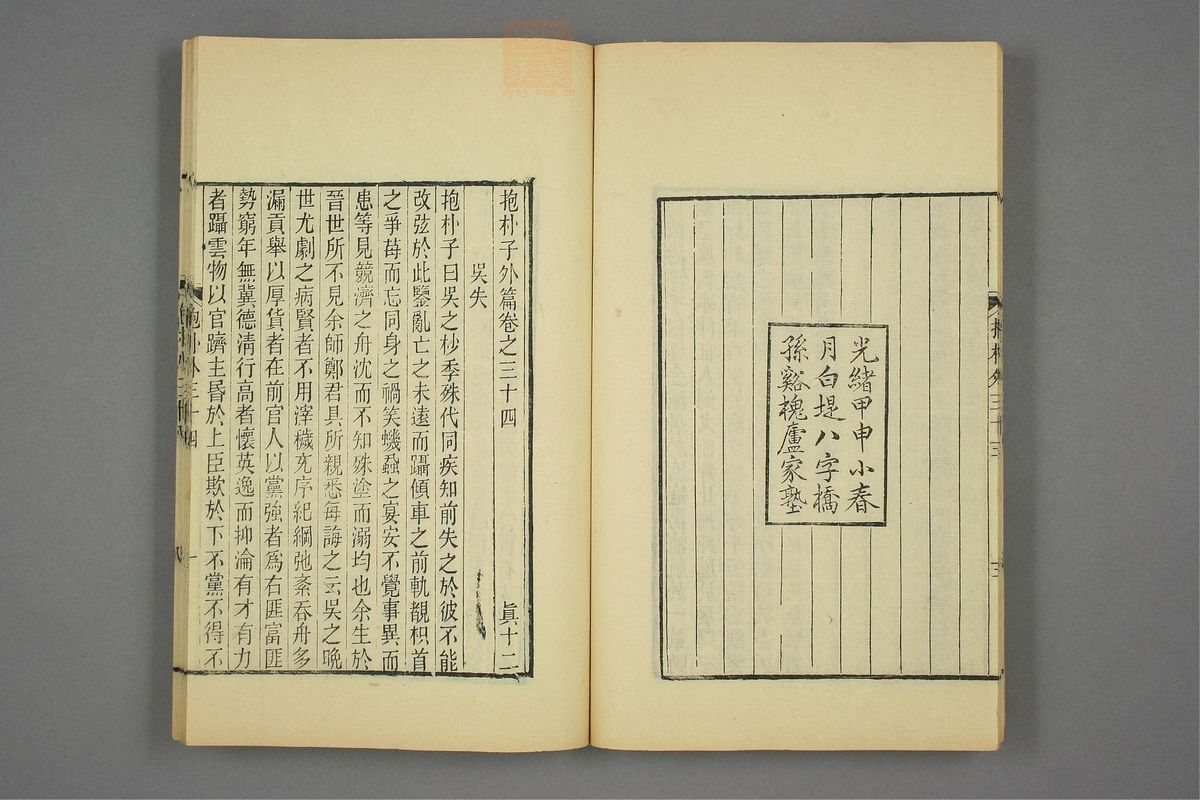 光緒甲申小春
月白堤八字橋
孫谿槐廬家塾
抱朴子外篇卷之三十四　眞十二
吳失
抱朴子曰吳之杪季殊代同疾知前失之於彼不能
改弦於此鑒亂亡之未遠而躡傾車之前軌覩枳首
之爭苺而忘同身之禍笑蟣蝨之宴安不覺事異而
患等見競濟之舟沈而不知殊塗而溺均也余生於
晉世所不見余師鄭君具所親悉每誨之云吳之晚
世尤劇之病賢者不用滓穢充序紀綱弛紊吞舟多
漏貢舉以厚貨者在前官人以黨強者爲右匪富匪
勢窮年無冀德淸行高者懷英逸而抑淪有才有力
者躡雲物以官躋主昏於上臣欺於下不黨不得不